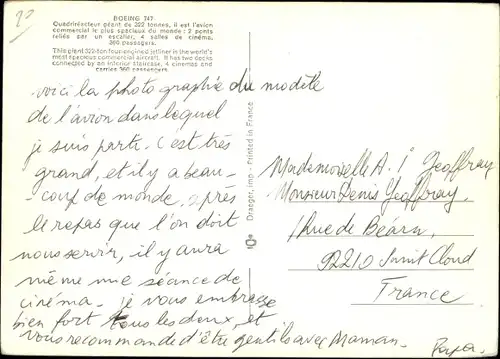 20
BOEING 747
Quadriréacteur géant de 322 tonnes, il est l'avion
commercial le plus spacieux du monde : 2 ponts
reliés par un escalier, 4 salles de cinéma,
360 passagers.
This giant 322-ton four-engined jetliner is the world's
most spacious commercial aircraft. It has two decks
connected by an interior staircase, 4 cinemas and
carries 360 passengers.
voici la photographie du modèle
de l'avion dans lequel
je suis parti. C'est très
grand, et il y a beau-
coup de monde. après
le repas que l'on doit
nous servir, il y aura
même une séance de
cinéma. je vous embrasse
bien fort tous les deux, et
vous recommande d'être gentils avec Maman.
Papa.
Draeger, imp - Printed in France
Mademoiselle A. Geoffray
Monsieur Denis Geoffray,
1 Rue de Béarn,
92210 Saint Cloud
France